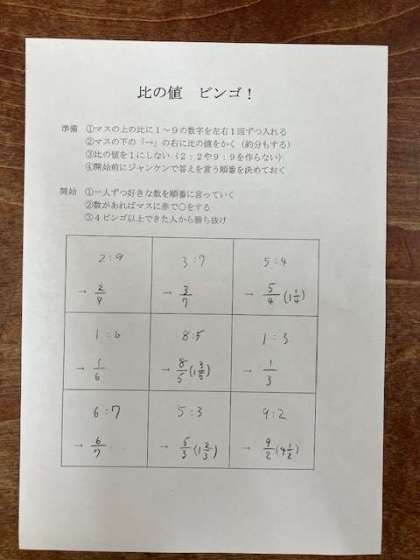 比の値 ビンゴ!
準備 ①マスの上の比に1~9の数字を左右1回ずつ入れる
②マスの下の「→」の右に比の値をかく(約分もする)
③比の値を1にしない(2:2や9:9を作らない)
④開始前にジャンケンで答えを言う順番を決めておく
開始 ①一人ずつ好きな数を順番に言っていく
②数があればマスに赤で○をする
③4ビンゴ以上できた人から勝ち抜け
2:9 3:7 5:4
→ 2/9 → 3/7 → 5/4 (1 1/4)
1:6 8:5 1:3
→ 1/6 → 8/5 (1 3/5) → 1/3
6:7 5:3 9:2
→ 6/7 → 5/3 (1 2/3) → 9/2 (4 1/2)